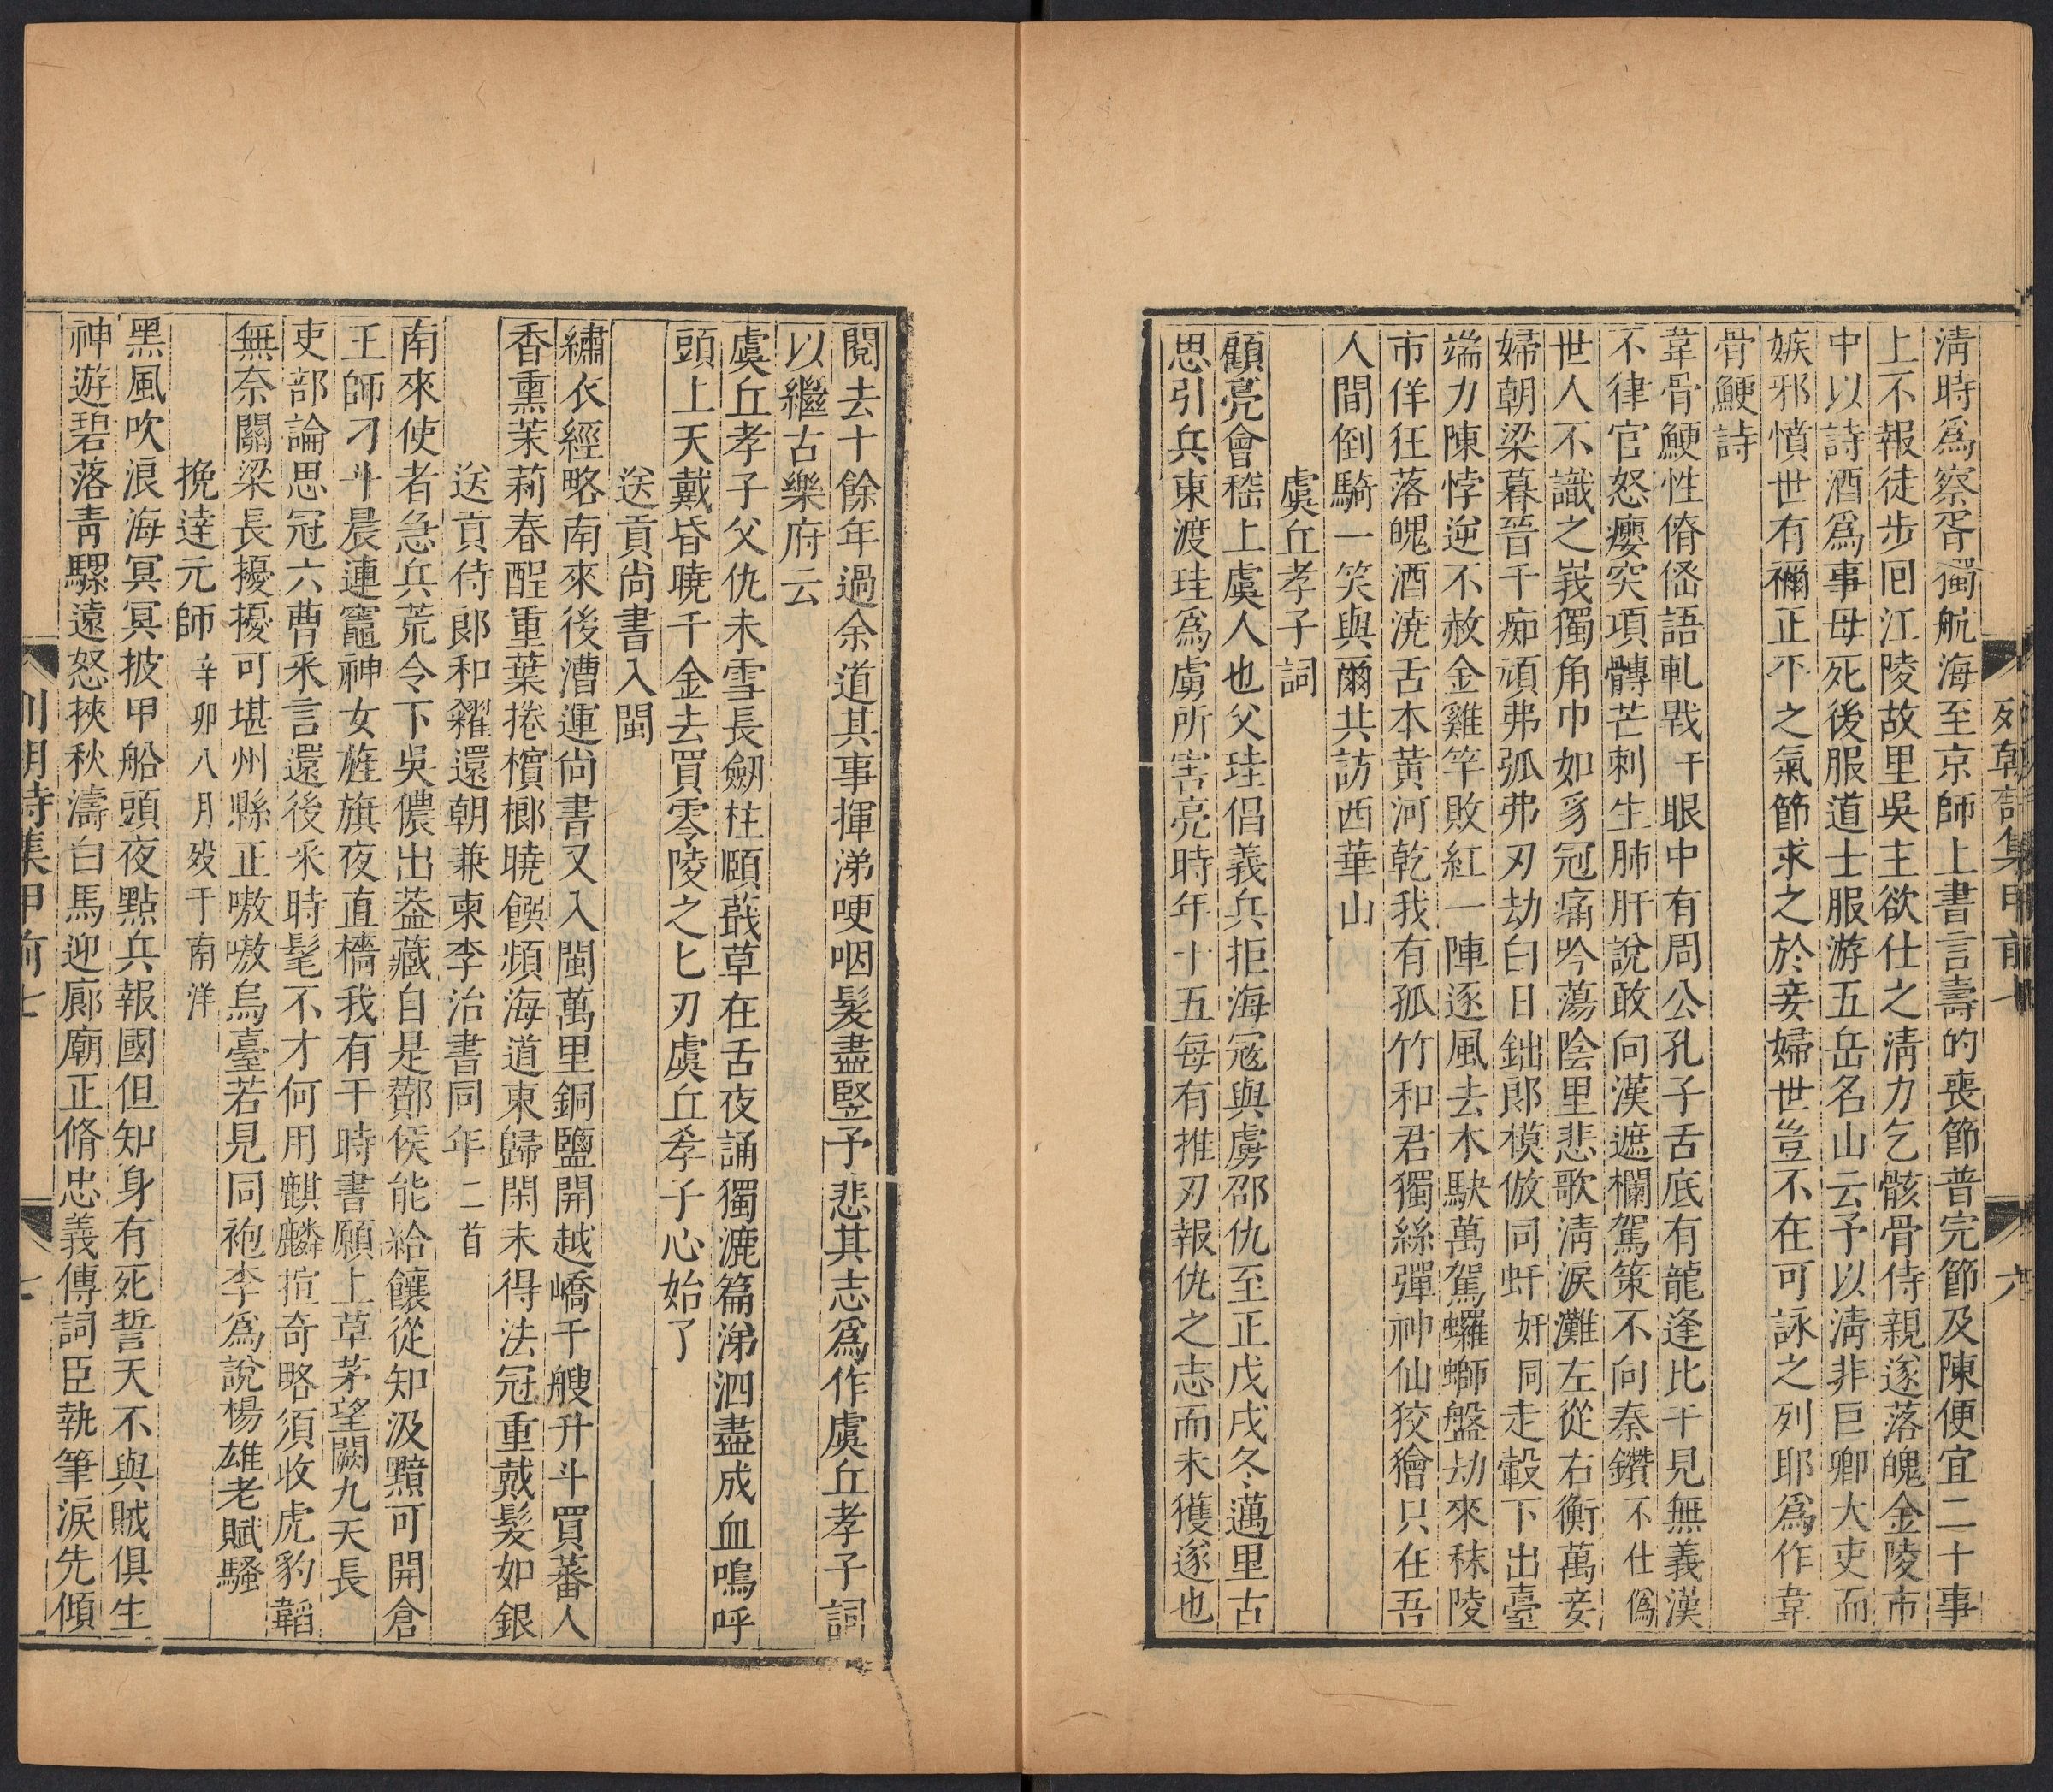 列朝詩集甲前七
六
淸時爲察胥獨航海至京師上書言壽的喪節普完節及陳便宜二十事
上不報徒步囘江陵故里吳主欲仕之淸力乞骸骨侍親遂落魄金陵市
中以詩酒爲事母死後服道士服游五岳名山云予以淸非巨卿大吏而
嫉邪憤世有禰正平之氣節求之於妾婦世豈不在可詠之列耶爲作韋
骨鯁詩
韋骨鯁性脩偹語軋戟干眼中有周公孔子舌底有龍逢比干見無義漢
不律官怒癭突項髆芒刺生肺肝說敢向漢遮欄駕策不向秦鑽不仕僞
世人不識之峩獨角巾如豸冠痛吟蕩陰里悲歌淸淚灘左從右衡萬妾
婦朝梁暮晉千痴頑弗弧弗刃劫白日鈯郞模倣同虷奸同走轂下出臺
端力陳悖逆不赦金雞竿敗紅一陣逐風去木駃萬駕螺螄盤劫來秣陵
市佯狂落魄酒澆舌本黄河乾我有孤竹和君獨絲彈神仙狡獪只在吾
人間倒騎一笑與爾共訪西華山
虞丘孝子詞
顧亮會嵇上虞人也父珪倡義兵拒海宼與虜邵仇至正戊戌冬邁里古
思引兵東渡珪爲虜所害亮時年十五每有推刃報仇之志而未獲遂也
閱去十餘年過余道其事揮涕哽咽髮盡竪予悲其志爲作虞丘孝子詞
以繼古樂府云
虞丘孝子父仇未雪長劒柱頤蕺草在舌夜誦獨漉篇涕泗盡成血嗚呼
頭上天戴昏曉千金去買零陵之匕刃虞丘孝子心始了
送貢尙書入閩
繡衣經略南來後漕運尙書又入閩萬里銅鹽開越嶠千艘升斗買蕃人
香熏茉莉春酲重葉捲檳榔曉饌頻海道東歸閑未得法冠重戴髮如銀
送貢侍郞和糴還朝兼柬李治書同年二首
南來使者急兵荒令下吳儂出葢藏自是酇侯能給饟從知汲黯可開倉
王師刁斗晨連竈神女旌旗夜直檣我有干時書願上草茅望闕九天長
吏部論思冠六曹釆言還後釆時髦不才何用麒麟揎奇略須收虎豹韜
無奈關梁長擾擾可堪州縣正嗷嗷烏臺若見同袍李爲說楊雄老賦騷
挽達元師辛卯八月歿于南洋
黑風吹浪海冥冥披甲船頭夜點兵報國但知身有死誓天不與賊俱生
神遊碧落青騾遠怒挾秋濤白馬迎廊廟正脩忠義傳詞臣執筆淚先傾
列朝詩集甲前七
七